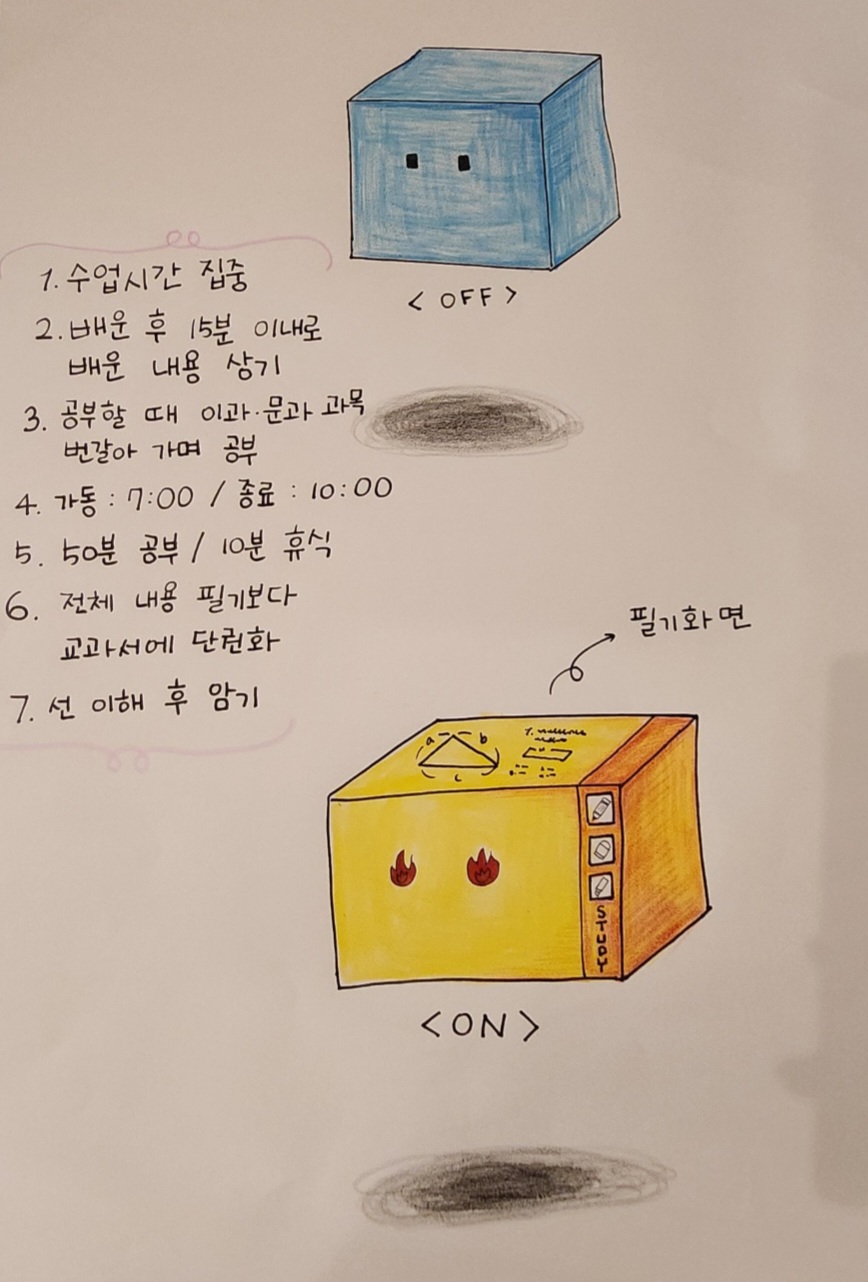 < OFF >
1. 수업시간 집중
2. 배운 후 15분 이내로
배운 내용 상기
3. 공부할 때 이과·문과 과목
번갈아 가며 공부
4. 가동 : 7:00 / 종료 : 10:00
5. 50분 공부 / 10분 휴식
6. 전체 내용 필기보다
교과서에 단권화
7. 선 이해 후 암기
필기화면
a b
c
STUDY
<ON>